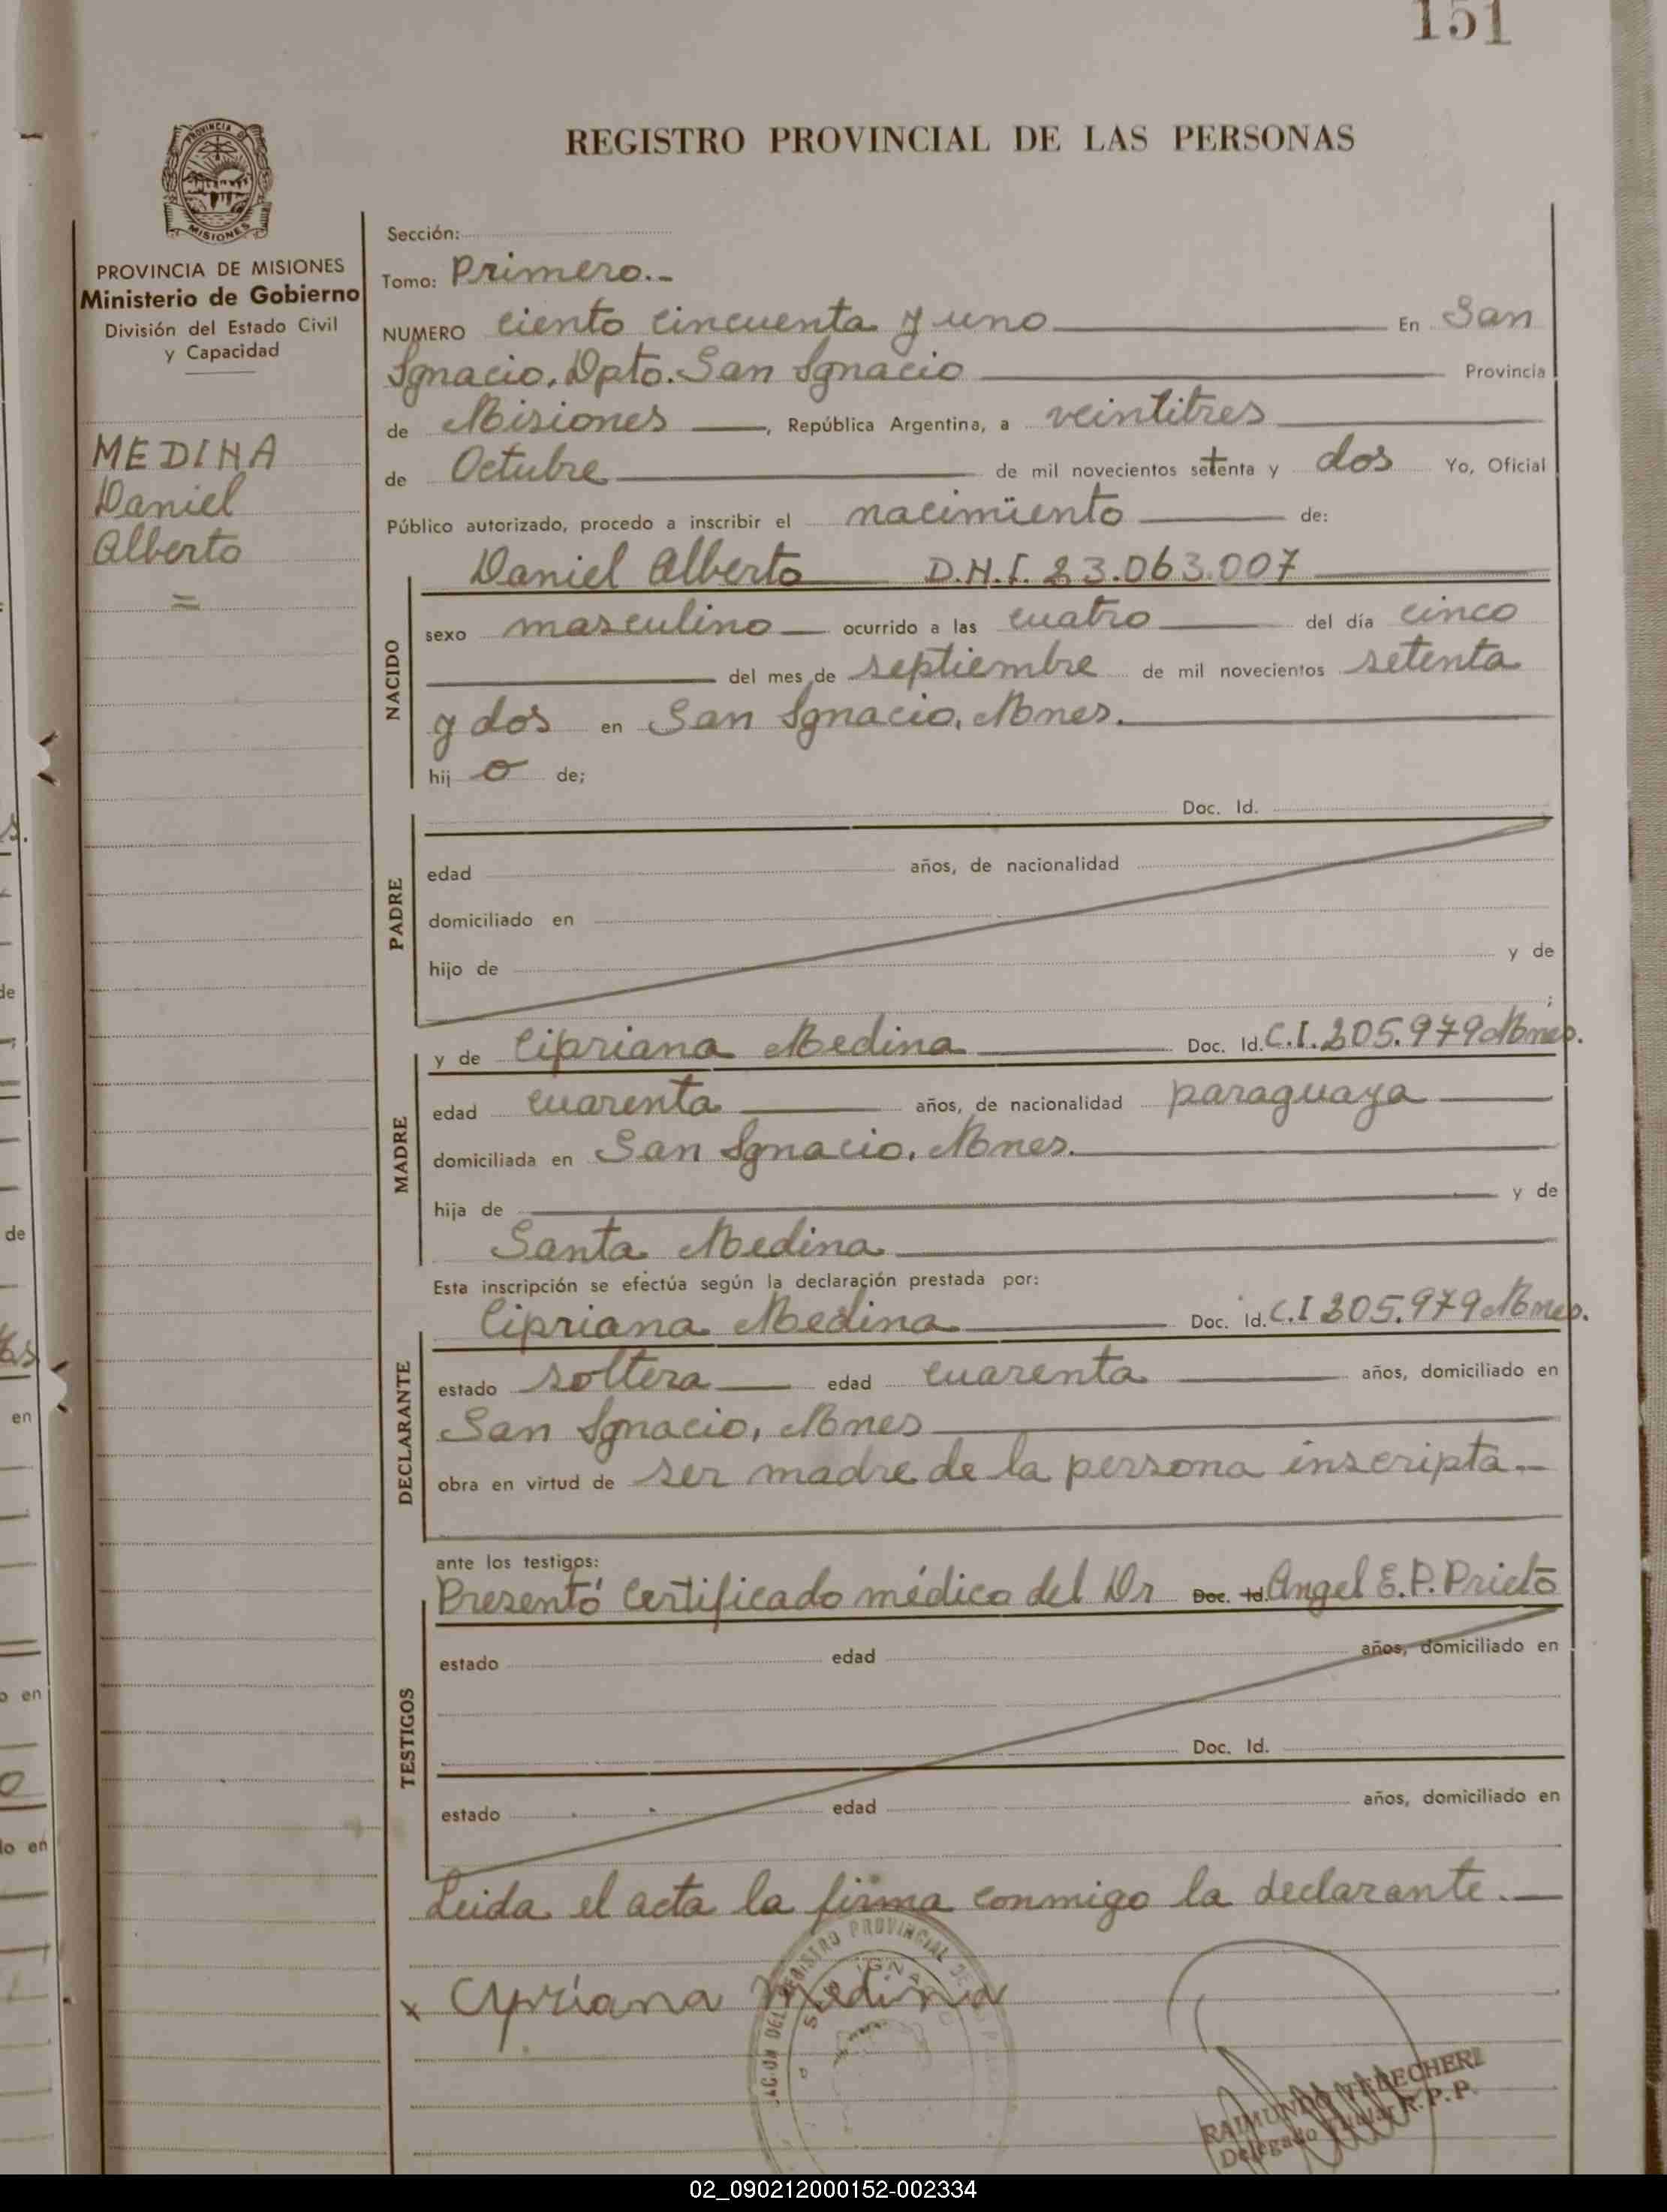 151
REGISTRO PROVINCIAL DE LAS PERSONAS
PROVINCIA DE
MISIONES
PROVINCIA DE MISIONES
Ministerio de Gobierno
División del Estado Civil
y Capacidad
MEDINA
Daniel
Alberto
=
Sección:
Tomo: Primero.-
NUMERO ciento cincuenta y uno En San
Ignacio, Dpto. San Ignacio Provincia
de Misiones, República Argentina, a veintitres
de Octubre de mil novecientos setenta y dos Yo, Oficial
Público autorizado, procedo a inscribir el nacimiento de:
NACIDO
Daniel Alberto D.N.I. 23.063.007
sexo masculino ocurrido a las cuatro del día cinco
del mes de septiembre de mil novecientos setenta
y dos en San Ignacio, Mnes.
hij o de;
PADRE
Doc. Id.
edad años, de nacionalidad
domiciliado en
hijo de y de
;
MADRE
y de Cipriana Medina Doc. Id. C.I. 205.979 Mnes.
edad cuarenta años, de nacionalidad paraguaya
domiciliada en San Ignacio, Mnes.
hija de y de
Santa Medina
Esta inscripción se efectúa según la declaración prestada por:
DECLARANTE
Cipriana Medina Doc. Id. C.I 205.979 Mnes.
estado soltera edad cuarenta años, domiciliado en
San Ignacio, Mnes
obra en virtud de ser madre de la persona inscripta.-
ante los testigos:
TESTIGOS
Presentó Certificado médico del Dr Doc. Id. Angel E. P. Prieto
estado edad años, domiciliado en
Doc. Id.
estado edad años, domiciliado en
Leida el acta la firma conmigo la declarante.
x Cypriana Medina
REGISTRO PROVINCIAL DE
RAIMUNDO
Delegado Titular R.P.P.
02_090212000152-002334